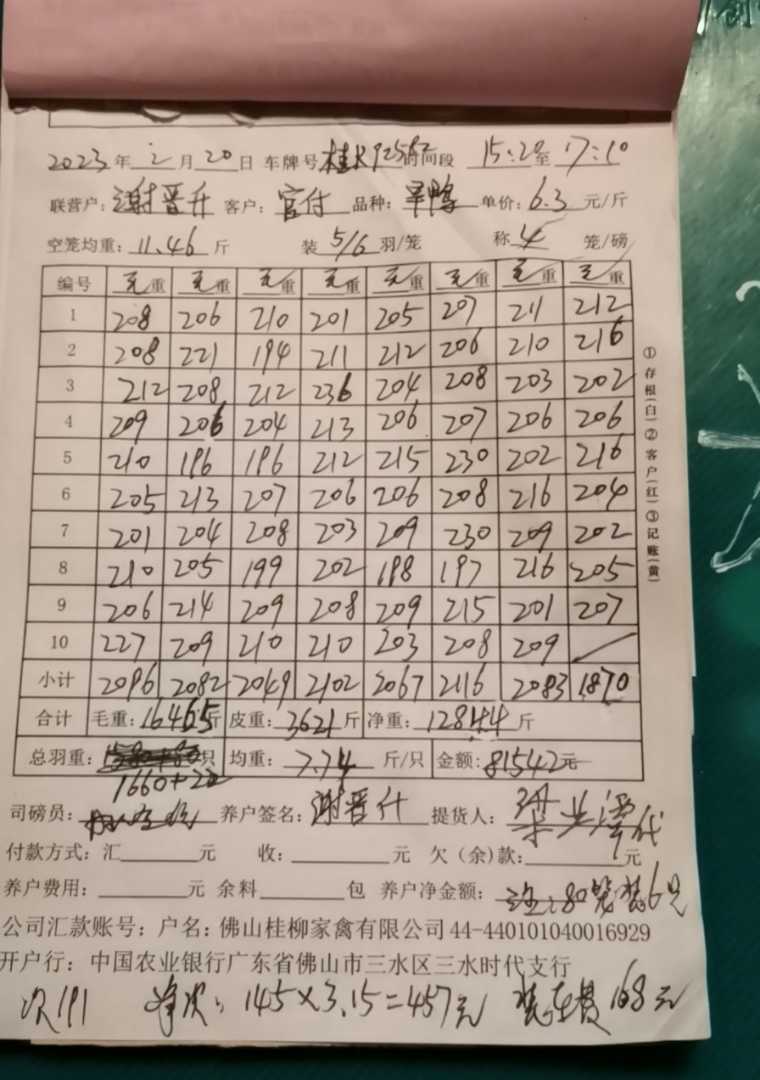 2023年2月20日 车牌号 桂K92582 时间段 15:20至17:10
联营户:谢晋升 客户:官付 品种:旱鸭 单价:6.3元/斤
空笼均重:11.46斤 装5/6羽/笼 称4笼/磅
编号 毛重 毛重 毛重 毛重 毛重 毛重 毛重 毛重
1 208 206 210 201 205 207 211 212
2 208 221 194 211 212 206 210 216
3 212 208 212 236 204 208 203 202
4 209 206 204 213 206 207 206 206
5 210 196 196 212 215 230 202 216
6 205 213 207 206 206 208 216 204
7 201 204 208 203 209 230 209 202
8 210 205 199 202 198 197 216 205
9 206 214 209 208 209 215 201 207
10 227 209 210 210 203 208 209 /
小计 2096 2082 2049 2102 2067 2116 2083 1870
合计 毛重:16465斤 皮重:3621斤 净重:12844斤
总羽重:只 均重:7.74斤/只 金额:81542元
1660+22
司磅员: 养户签名:谢晋升 提货人:代
付款方式:汇 元 收: 元 欠(余)款: 元
养户费用: 元 余料 包 养户净金额: 注:80笼装6只
公司汇款账号:户名:佛山桂柳家禽有限公司44-440101040016929
开户行:中国农业银行广东省佛山市三水区三水时代支行
次191 净次:145×3.15=457元 装车费168元
①存根(白)②客户(红)③记账(黄)